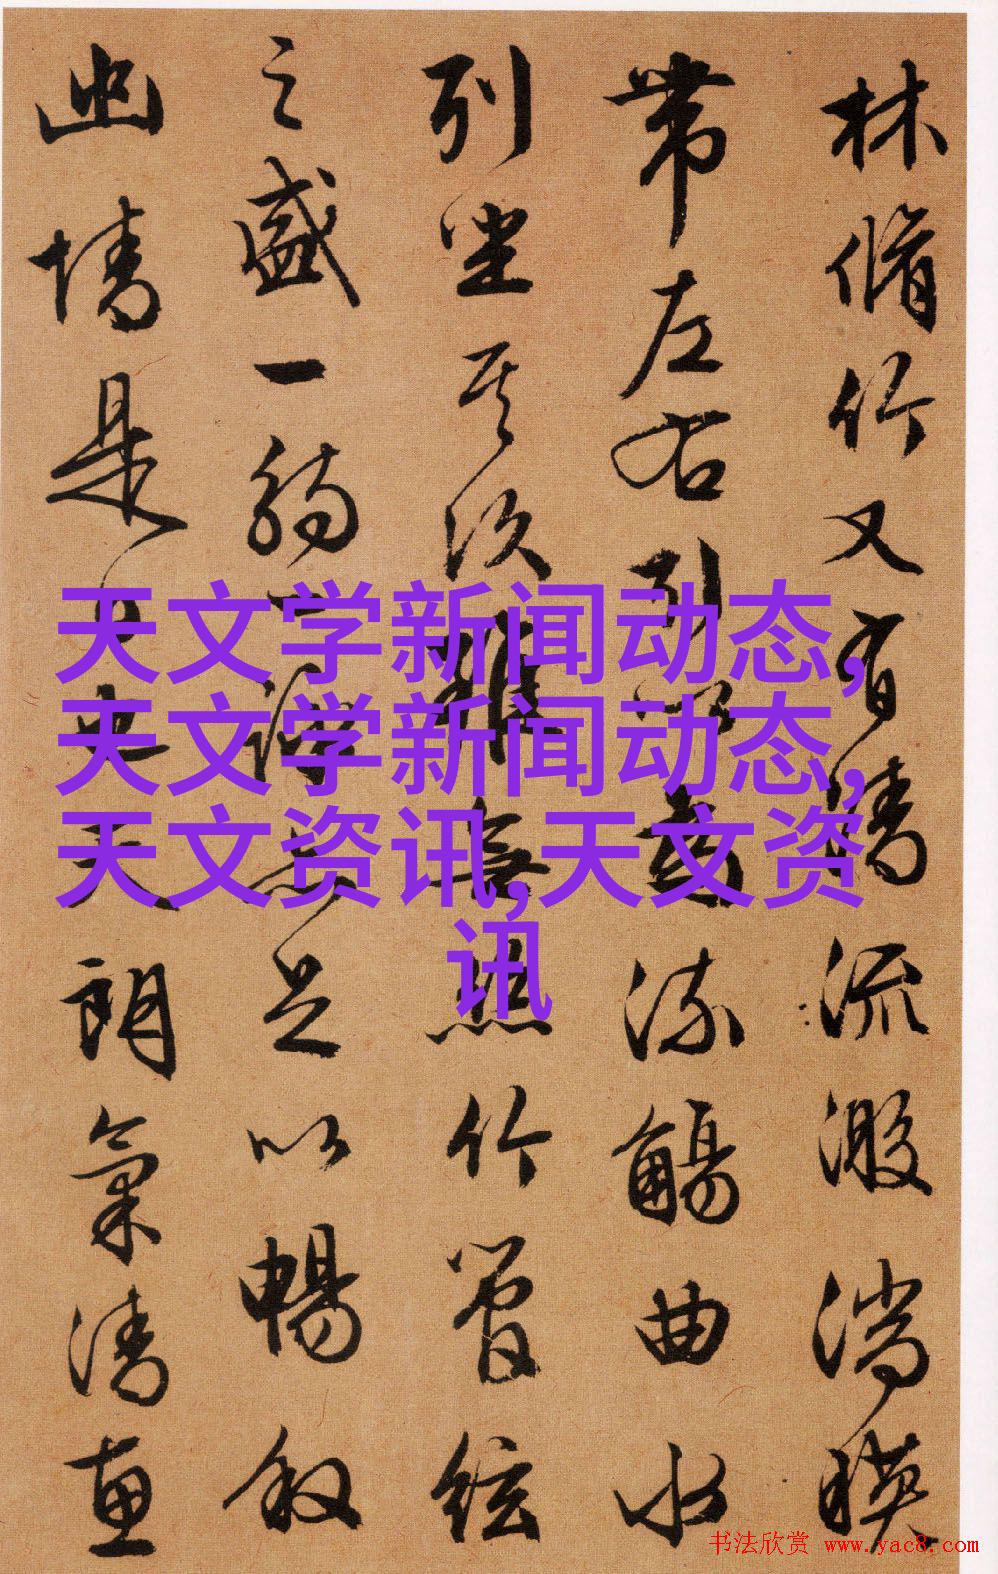 林脩竹又有清流激湍映
帶左右引以為流觴曲水
列坐其次雖無竹管絃
之盛一觴一詠亦足以暢敘
幽情是日也天朗氣清惠
天文学新闻动态,
天文学新闻动态,
天文资讯,天文资
讯
书法欣赏 www.yac8.com